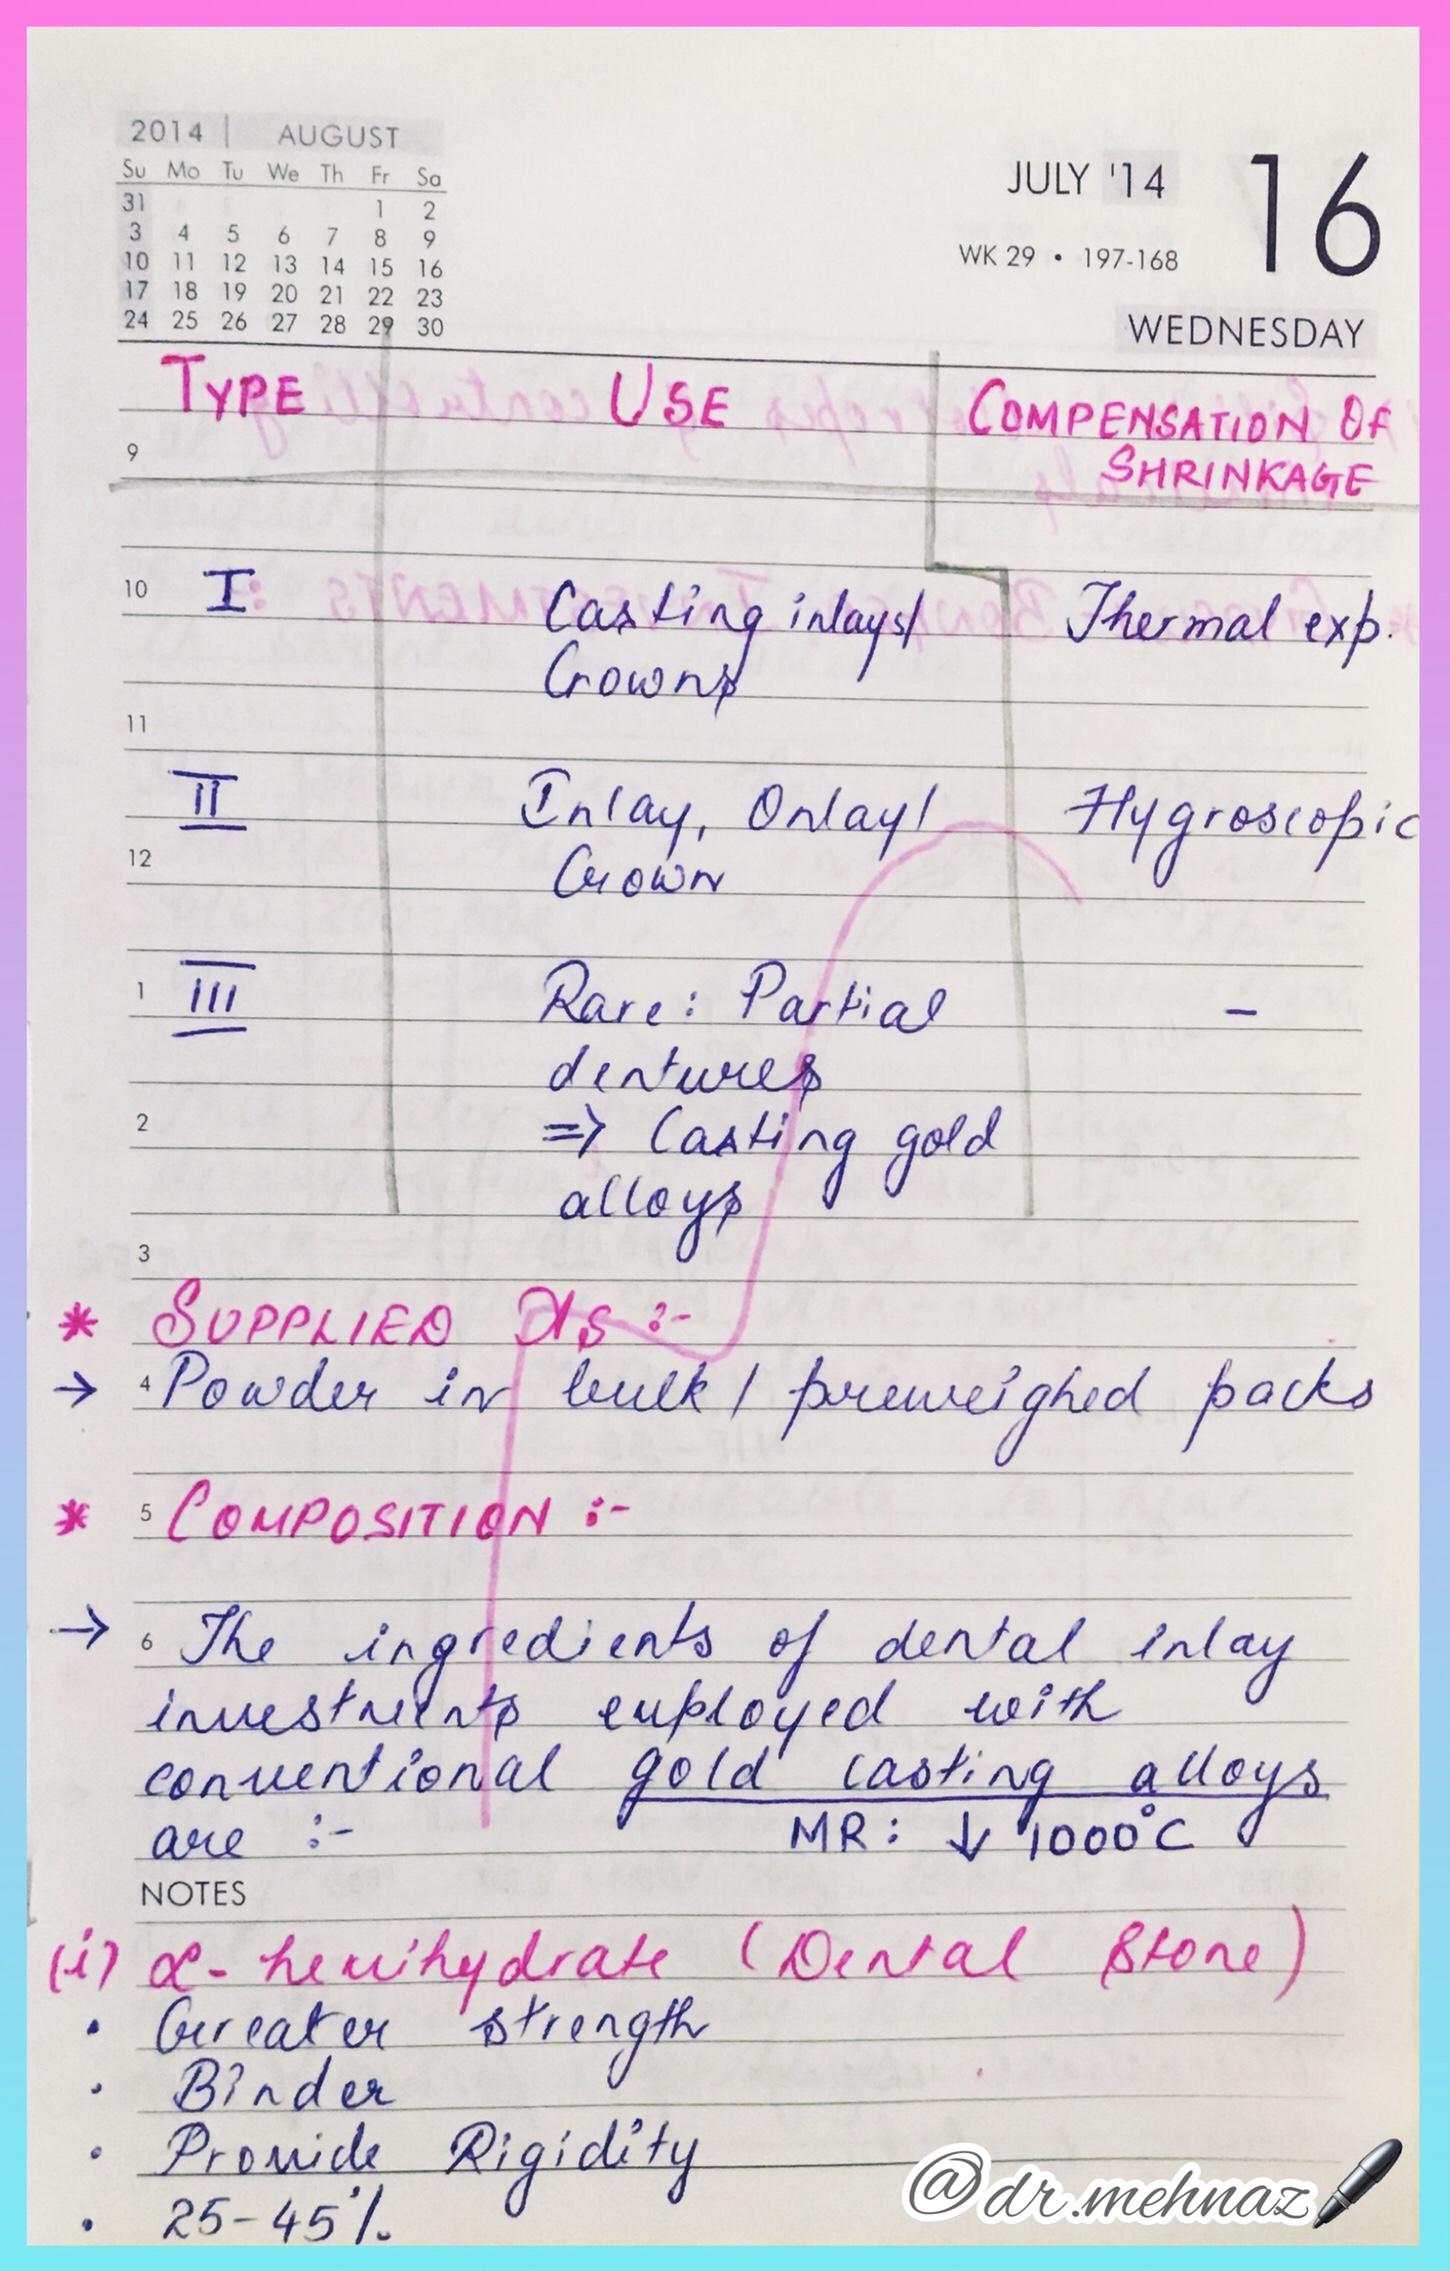 2014 | AUGUST
Su Mo Tu We Th Fr Sa
31 1 2
3 4 5 6 7 8 9
10 11 12 13 14 15 16
17 18 19 20 21 22 23
24 25 26 27 28 29 30
JULY '14 16
WK 29 • 197-168
WEDNESDAY
TYPE USE COMPENSATION OF
SHRINKAGE
9
10 I Casting inlays/ Thermal exp.
Crowns
11
II Inlay, Onlay/ Hygroscopic
12 Crown
1 III Rare: Partial -
dentures
2 => Casting gold
alloys
3
* SUPPLIED AS :-
→ 4 Powder in bulk / preweighed packs
* 5 COMPOSITION :-
→ 6 The ingredients of dental inlay
investments employed with
conventional gold casting alloys
are :- MR: ↓ 1000°C
NOTES
(i) α- hemihydrate (Dental Stone)
• Greater strength
• Binder
• Provide Rigidity
• 25-45%.
@dr.mehnaz